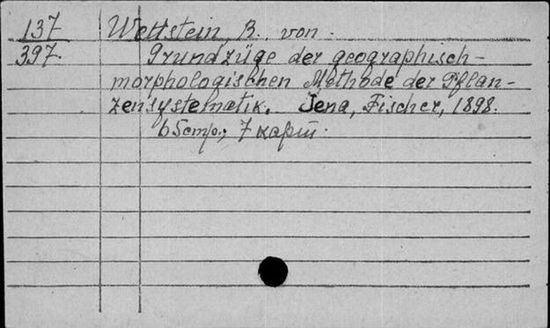 137
397.
Wettstein, R. von.
Grundzüge der geographisch-
morphologischen Methode der Pflan-
zensystematik. Jena, Fischer, 1898.
64 стр., 7 карт